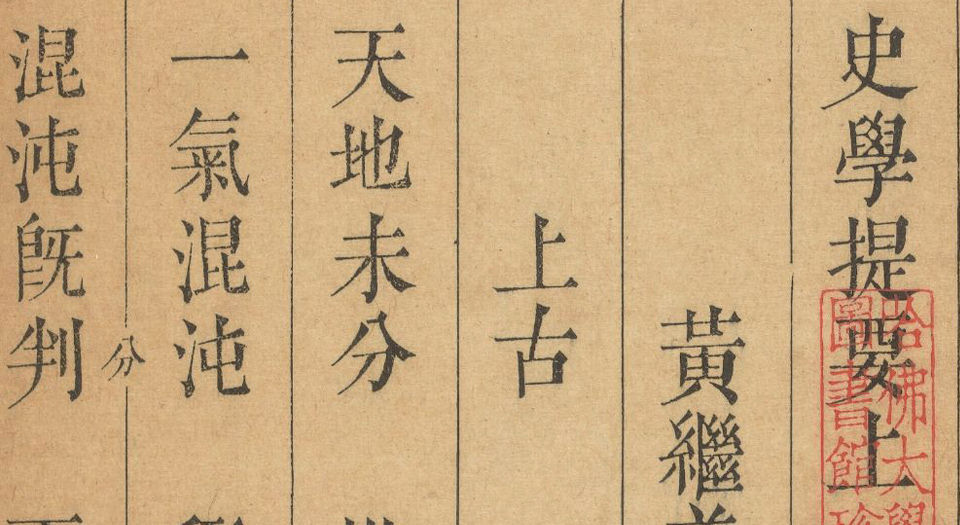 史學提要上
黃繼
上古
天地未分
一氣混沌
混沌旣判
分
哈佛大學
圖書館珍